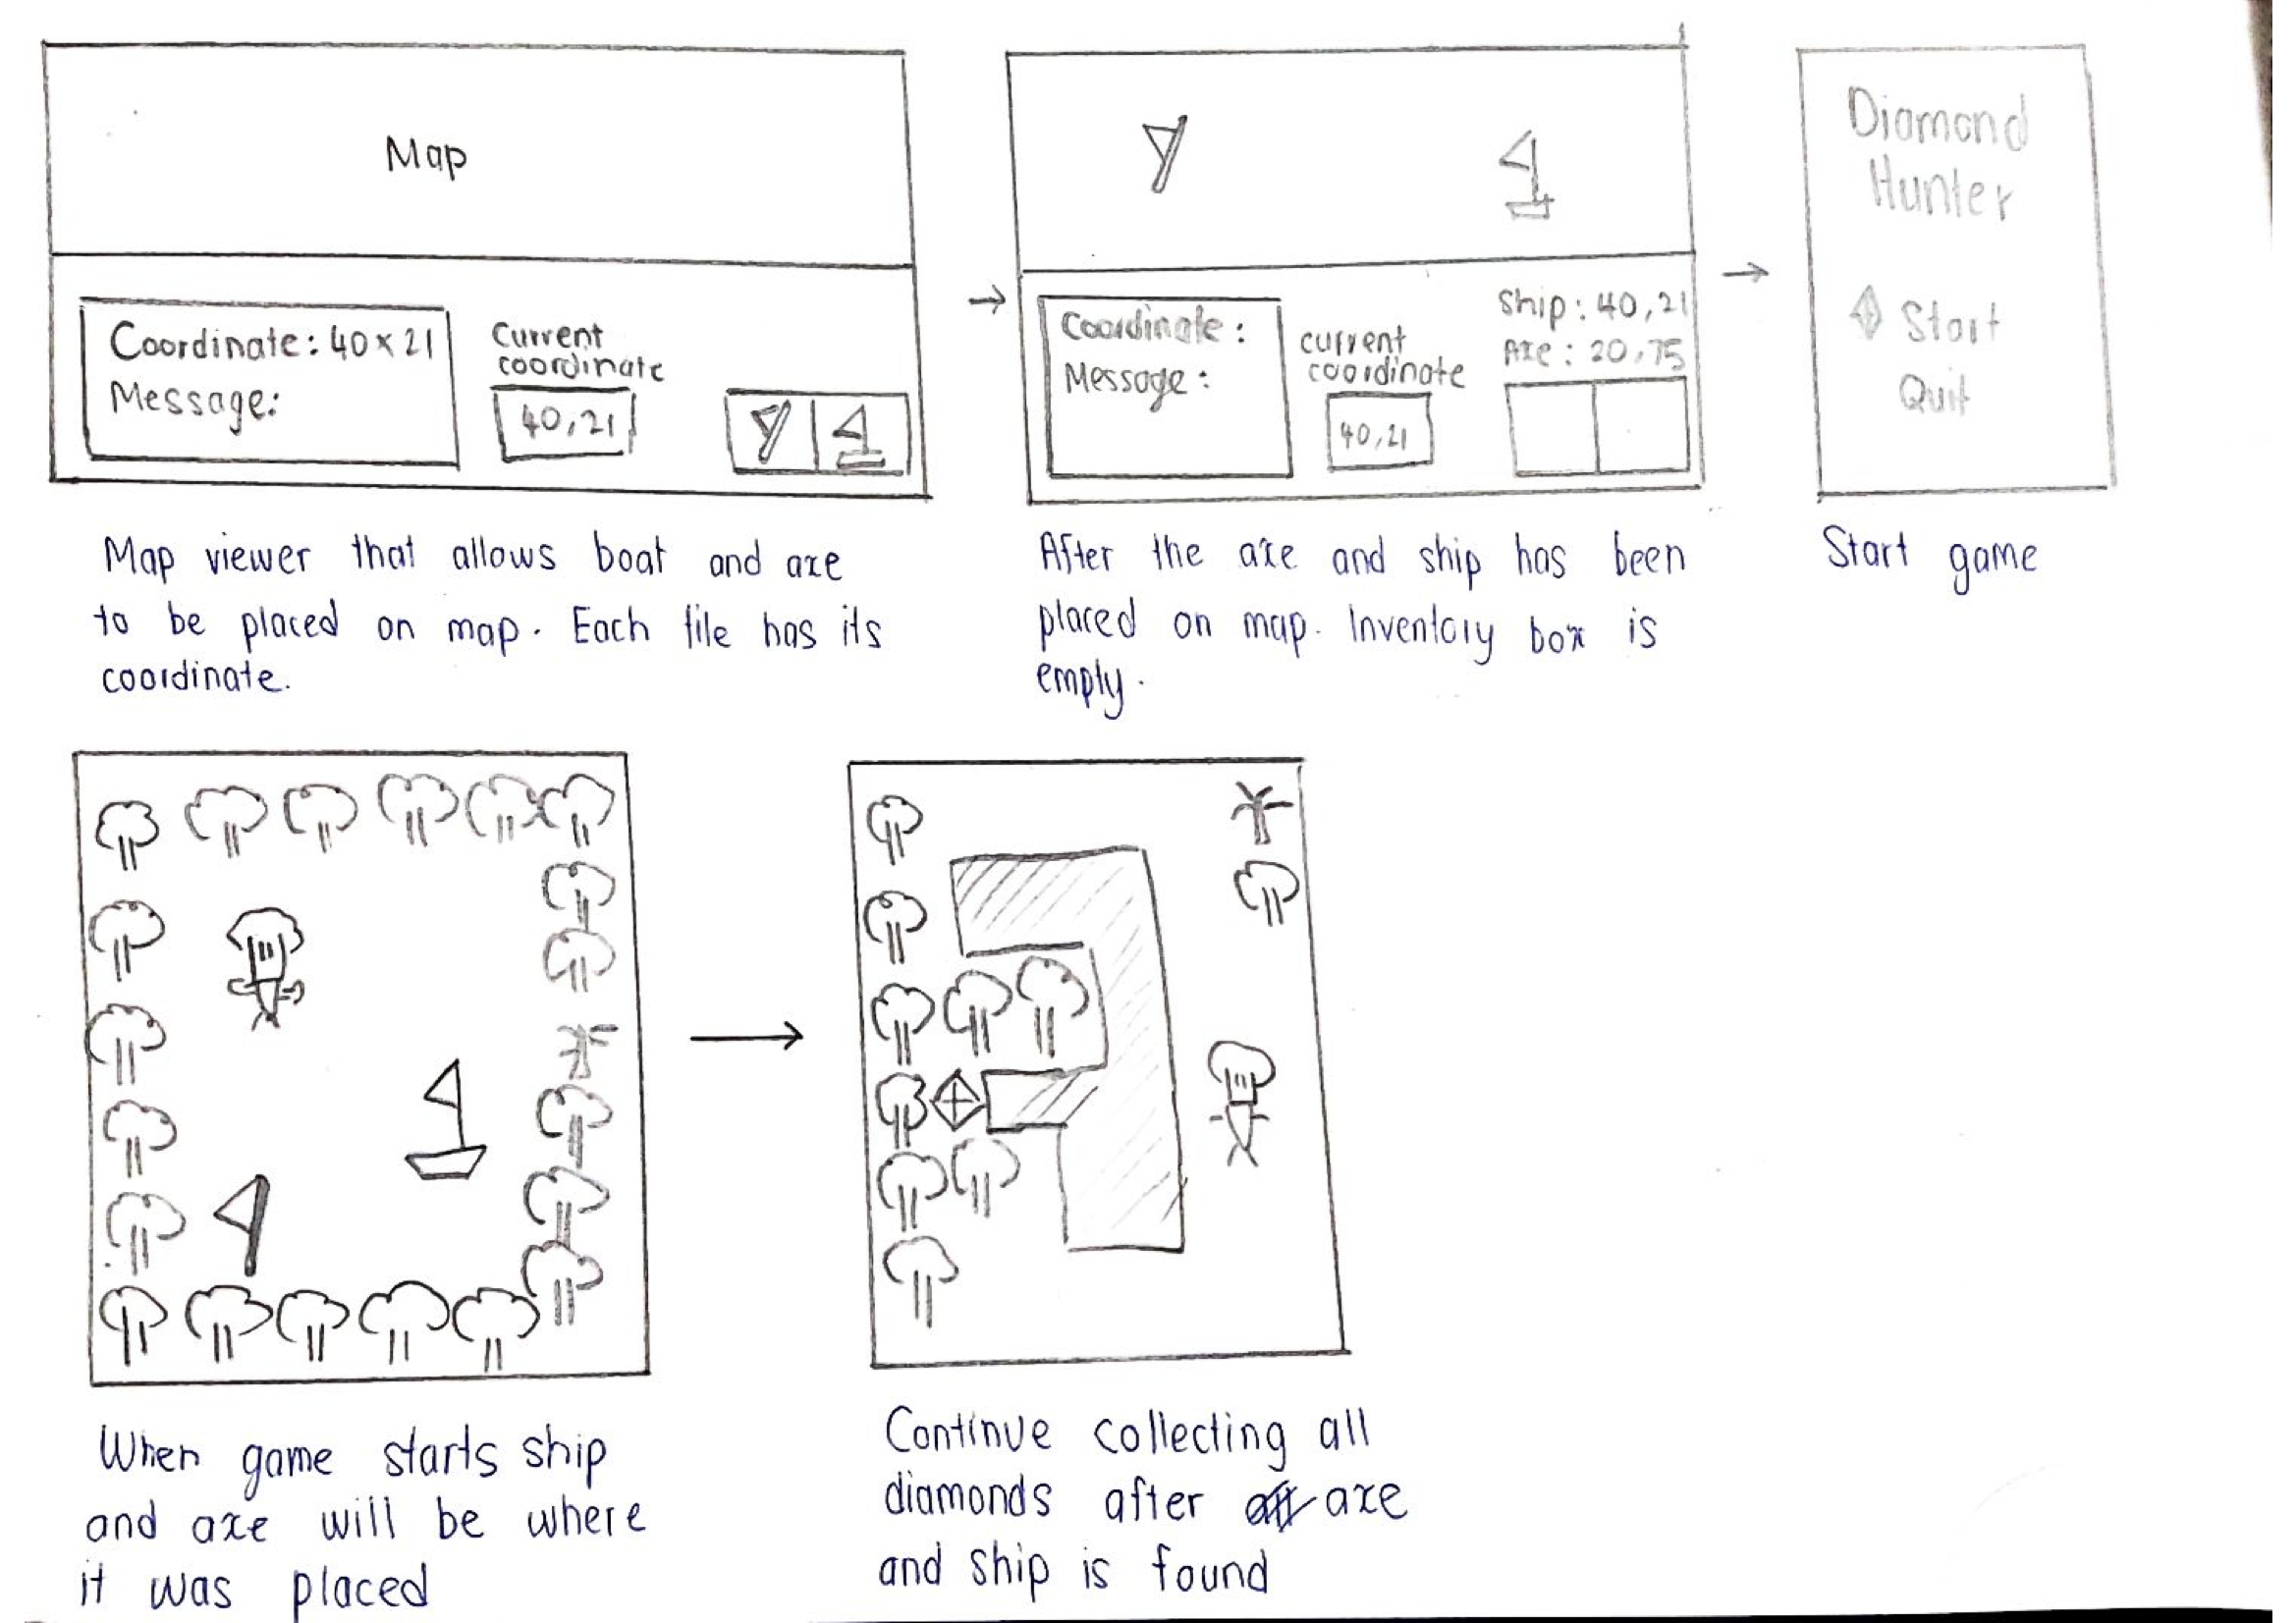 Map
Coordinate: 40 x 21
Message:
Current
coordinate
40,21
Map viewer that allows boat and axe
to be placed on map. Each tile has its
coordinate.
Coordinate:
Message:
current
coordinate
40,21
Ship: 40,21
Axe: 20,75
After the axe and ship has been
placed on map. Inventory box is
empty.
Diamond
Hunter
Start
Quit
Start game
When game starts ship
and axe will be where
it was placed
Continue collecting all
diamonds after axe
and ship is found